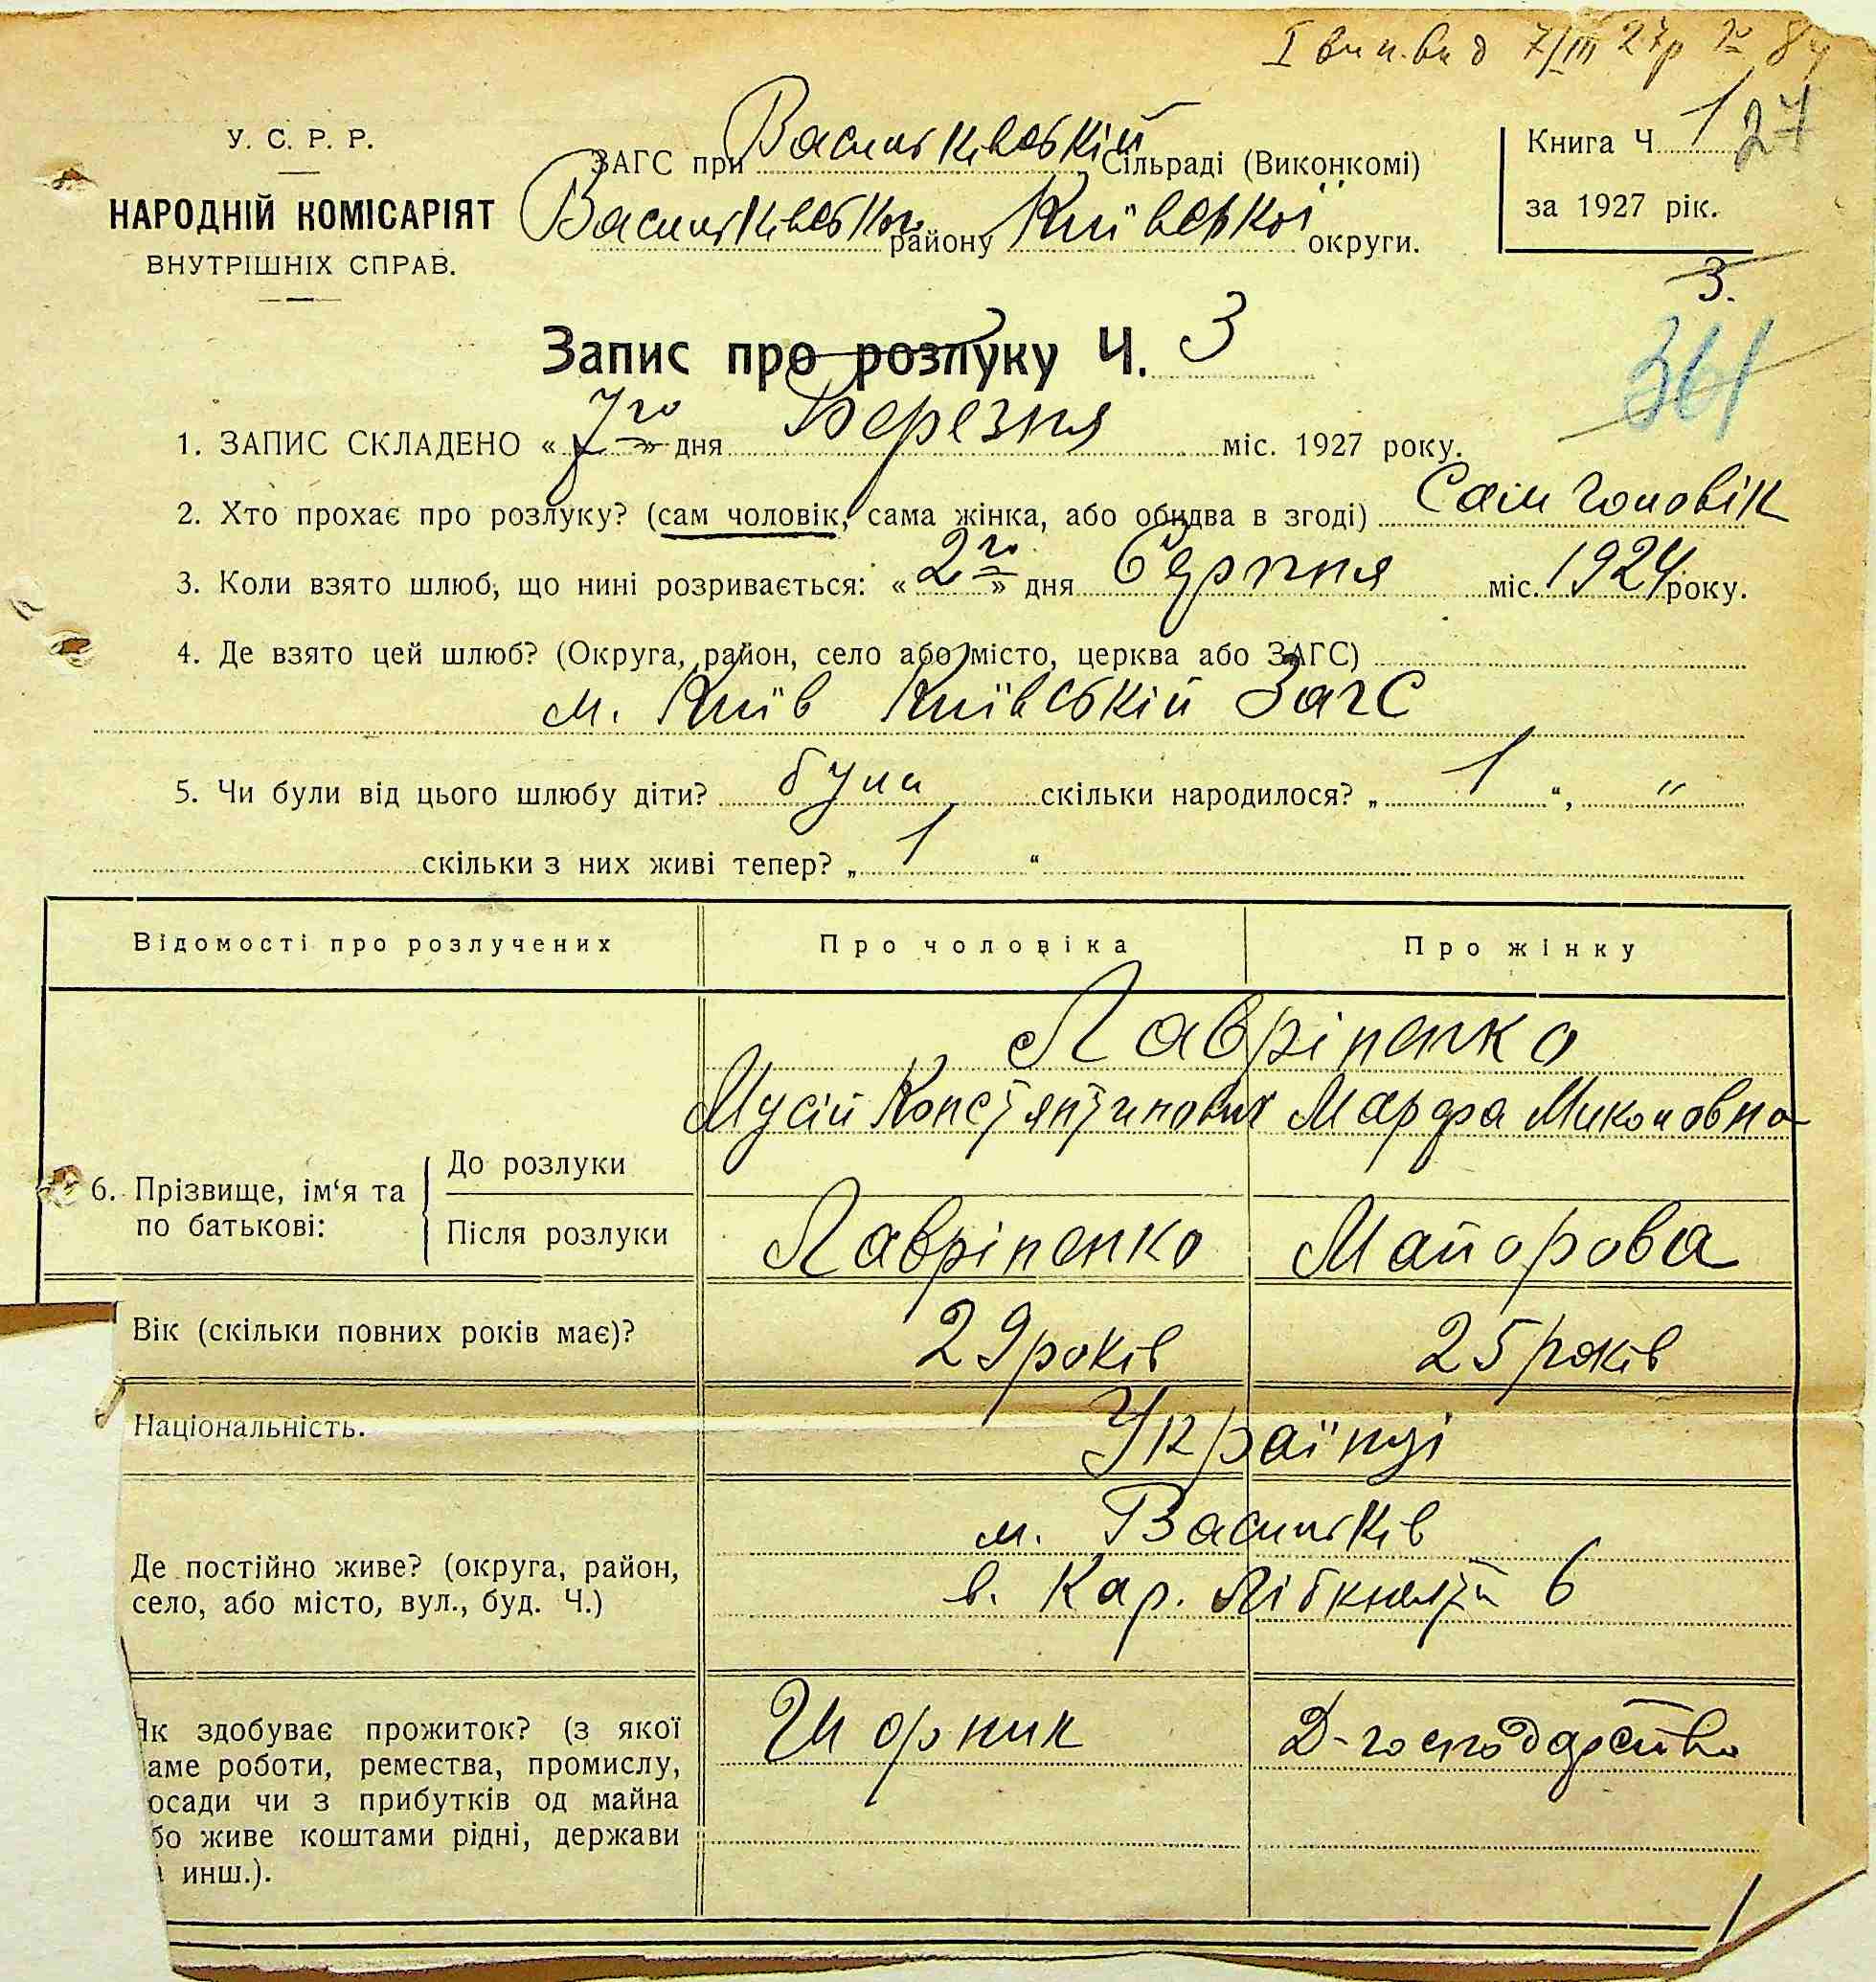 I вип. вид 7/III 27р № 84
У. С. Р. Р.
НАРОДНІЙ КОМІСАРІЯТ
ВНУТРІШНІХ СПРАВ.
ЗАГС при Васильківській Сільраді (Виконкомі)
Васильківського району Київської округи.
Книга Ч. 1
27
за 1927 рік.
3.
361
Запис про розлуку Ч. 3
1. ЗАПИС СКЛАДЕНО « 7го » дня Березня міс. 1927 року.
2. Хто прохає про розлуку? (сам чоловік, сама жінка, або обидва в згоді) Сам чоловік
3. Коли взято шлюб, що нині розривається: « 2го » дня Серпня міс. 1924 року.
4. Де взято цей шлюб? (Округа, район, село або місто, церква або ЗАГС)
м. Київ Київській Загс
5. Чи були від цього шлюбу діти? були скільки народилося? „ 1 “, "
скільки з них живі тепер? „ 1 “
Відомості про розлучених Про чоловіка Про жінку
Лавріненко
Мусій Констянтинович Марфа Миколовна
6. Прізвище, ім‘я та по батькові:
До розлуки
Після розлуки Лавріненко Майорова
Вік (скільки повних років має)? 29 років 25 років
Національність. Українці
м. Васильків
Де постійно живе? (округа, район,
село, або місто, вул., буд. Ч.) в. Кар. Лібкнехта 6
Як здобуває прожиток? (з якої Чорник Д-господарство
аме роботи, ремества, промислу,
осади чи з прибутків од майна
бо живе коштами рідні, держави
инш.).